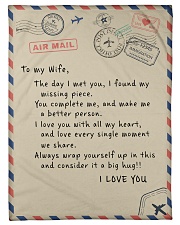 AIR MAIL
To my Wife,
The day I met you, I found my
missing piece.
You complete me, and make me
a better person.
I love you with all my heart,
and love every single moment
we share.
Always wrap yourself up in this
and consider it a big hug!!
I LOVE YOU